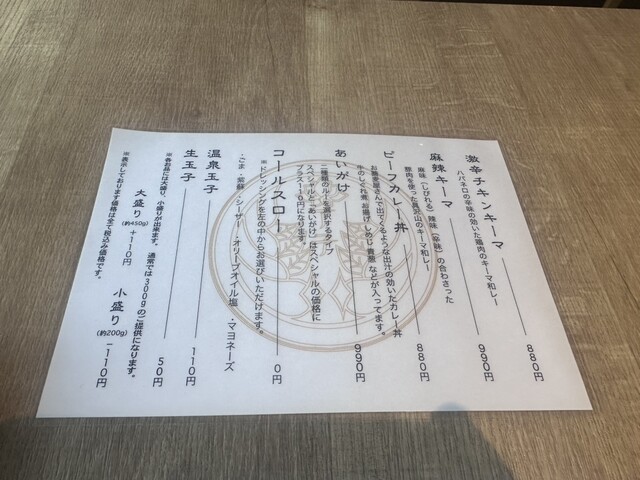 激辛チキンキーマ 880円
ハバネロの辛味の効いた鶏肉のキーマ和レー
麻辣キーマ 990円
麻味（しびれる）辣味（辛味）の合わさった
豚肉を使った具沢山のキーマ和レー
ビーフカレー丼 880円
お蕎麦屋さんで出てくるような出汁の効いたカレー丼
牛のしぐれ煮 お揚げ しめじ 青葱 などが入ってます。
あいがけ 990円
二種類のルーを選択するタイプ
スペシャルと「あいがけ」はスペシャルの価格に
プラス110円になります。
コールスロー 0円
※ドレッシングを左の中からお選びいただけます。
・ごま ・シーザー ・オリーブオイル塩 ・マヨネーズ
温泉玉子 110円
生玉子 50円
※各お品には大盛り、小盛りが出来ます。 通常で300gのご提供になります。
大盛り(約450g) +110円 小盛り(約200g) −110円
※表示しております価格は全て税込み価格です。